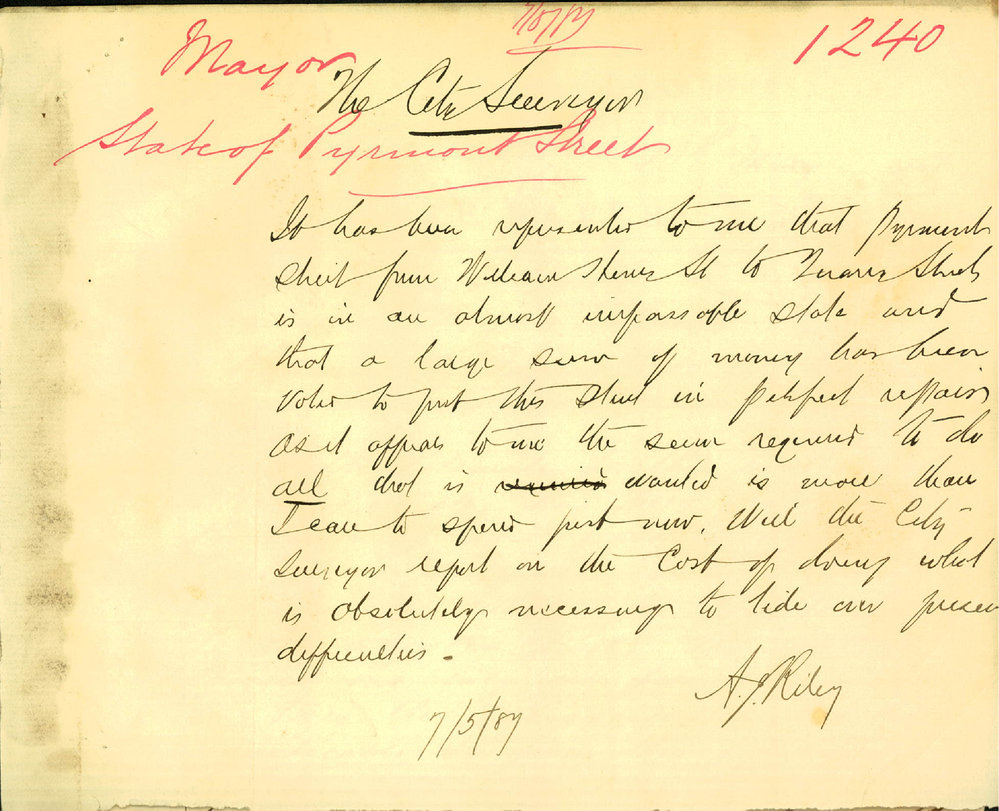 7/5/87
1240
Mayor
The City Surveyor
State of Pyrmont Street
It has been represented to me that Pyrmont
Street from William Henry St to Quarry Street
is in an almost impassable state and
that a large sum of money has been
voted to put this Street in perfect repair
as it appears to me the sum required to do
all that is required wanted is more than
I care to spend just now. Will the City
Surveyor report on the Cost of doing what
is absolutely necessary to tide over presen
difficulties.
A.J. Riley
7/5/87